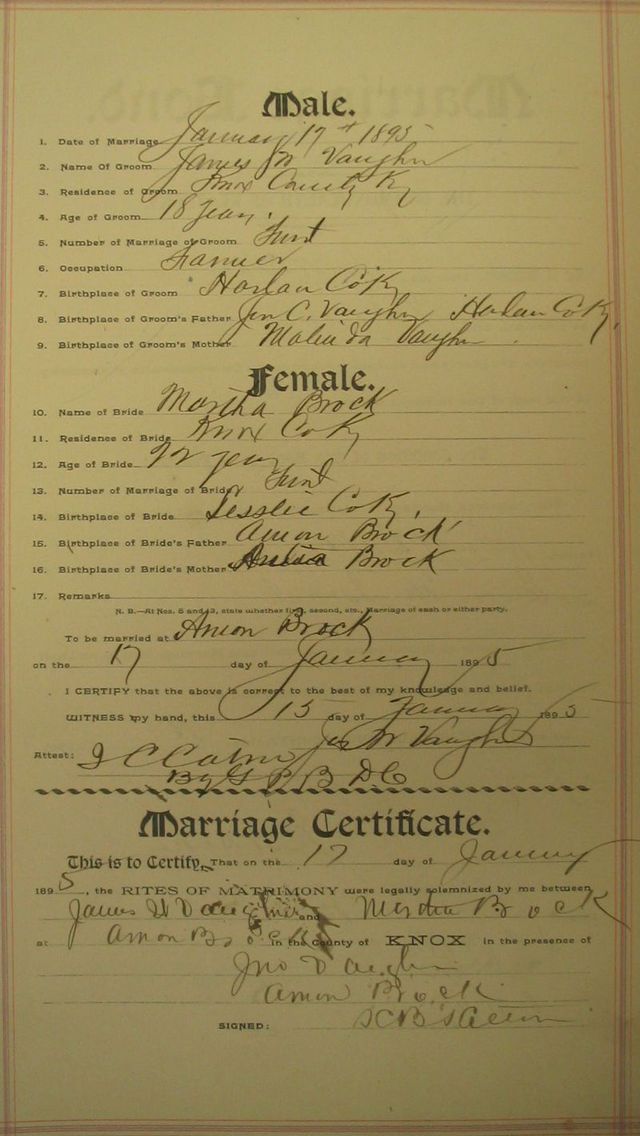 Male.
1. Date of Marriage January 17th 1895
2. Name Of Groom James W Vaughn
3. Residence of Groom Knox County Ky
4. Age of Groom 18 years.
5. Number of Marriage of Groom First
6. Occupation Farmer
7. Birthplace of Groom Harlan Co Ky
8. Birthplace of Groom's Father Jno C. Vaughn Harlan Co Ky.
9. Birthplace of Groom's Mother Malinda Vaughn
Female.
10. Name of Bride Martha Brock
11. Residence of Bride Knox Co Ky
12. Age of Bride 22 years
13. Number of Marriage of Bride First
14. Birthplace of Bride Lesslie Co Ky,
15. Birthplace of Bride's Father Amon Brock
16. Birthplace of Bride's Mother Brock
17. Remarks
N. B.—At Nos. 5 and 13, state whether first, second, etc., Marriage of each or either party.
To be married at Amon Brock
on the 17 day of January 1895
I CERTIFY that the above is correct to the best of my knowledge and belief.
WITNESS my hand, this 15 day of January 1895
Jas W Vaughn
Attest:
By G P B D C
Marriage Certificate.
This is to Certify, That on the 17 day of January
1895, the RITES OF MATRIMONY were legally solemnized by me between
James W Vaughn and Martha Brock
at Amon Brock in the County of KNOX in the presence of
Jno Vaughn
Amon Brock
SIGNED: